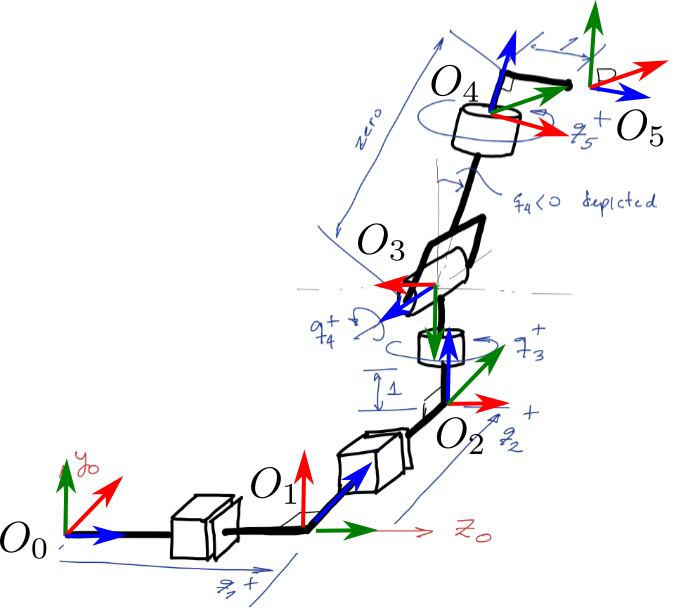 1
O₄
O₅
q₅⁺
zero
q₄<0 depicted
O₃
q₄⁺
q₃⁺
1
O₂
q₂⁺
y₀
O₁
O₀
z₀
q₁⁺